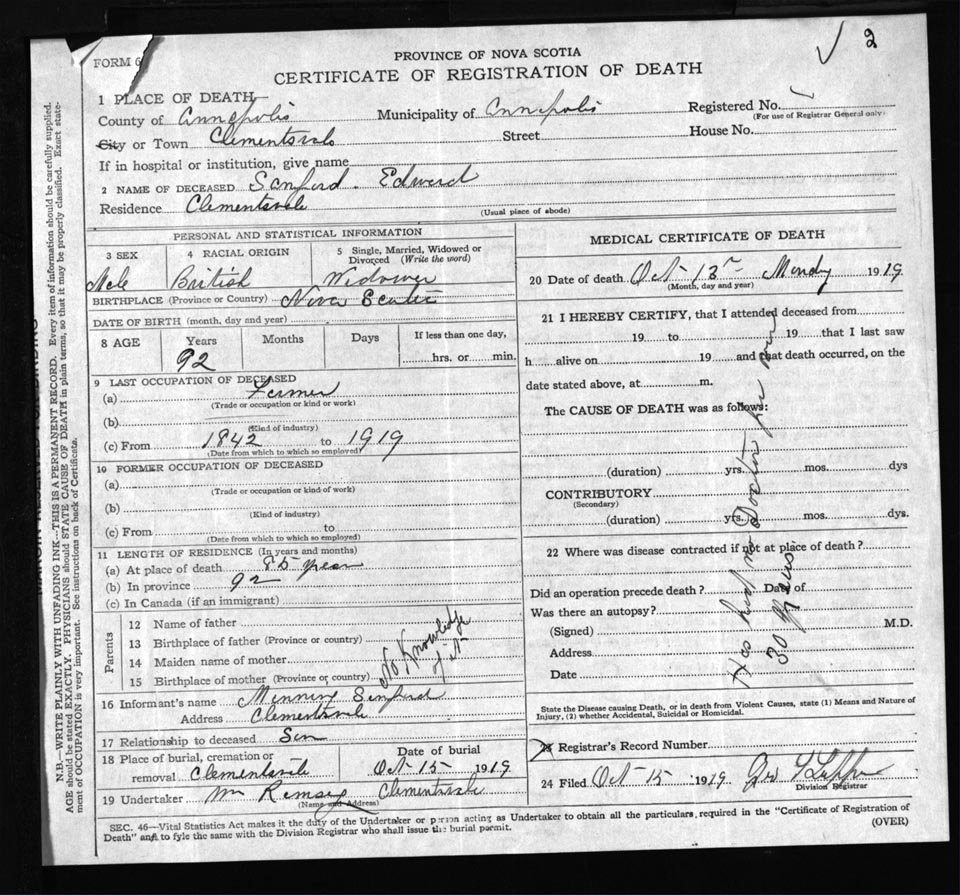 2
FORM 6
PROVINCE OF NOVA SCOTIA
CERTIFICATE OF REGISTRATION OF DEATH
1 PLACE OF DEATH—
County of Annapolis Municipality of Annapolis Registered No.
(For use of Registrar General only)
City or Town Clementsvale Street House No.
If in hospital or institution, give name
2 NAME OF DECEASED Sanford. Edward
Residence Clementsvale (Usual place of abode)
PERSONAL AND STATISTICAL INFORMATION
3 SEX 4 RACIAL ORIGIN 5 Single, Married, Widowed or Divorced (Write the word)
Male British Widower
BIRTHPLACE (Province or Country) Nova Scotia
DATE OF BIRTH (month, day and year)
8 AGE Years Months Days If less than one day,
92 hrs. or min.
9 LAST OCCUPATION OF DECEASED
(a) Farmer
(Trade or occupation or kind or work)
(b)
(Kind of industry)
(c) From 1842 to 1919
(Date from which to which so employed)
10 FORMER OCCUPATION OF DECEASED
(a)
(Trade or occupation or kind of work)
(b)
(Kind of industry)
(c) From to
(Date from which to which so employed)
11 LENGTH OF RESIDENCE (In years and months)
(a) At place of death 85 years
(b) In province 92
(c) In Canada (if an immigrant)
Parents
12 Name of father
13 Birthplace of father (Province or country)
14 Maiden name of mother
15 Birthplace of mother (Province or country)
No Knowledge
of it
16 Informant's name Sanford
Address Clementsvale
17 Relationship to deceased Son
18 Place of burial, cremation or Date of burial
removal Clementsvale Oct 15 1919
19 Undertaker Wm Ramsay Clementsvale
(Name and Address)
MEDICAL CERTIFICATE OF DEATH
20 Date of death Oct 13 Monday 1919
(Month, day and year)
21 I HEREBY CERTIFY, that I attended deceased from
19 to 19 that I last saw
h alive on 19 and that death occurred, on the
date stated above, at m.
The CAUSE OF DEATH was as follows:
(duration) yrs. mos. dys
CONTRIBUTORY
(Secondary)
(duration) yrs. mos. dys.
22 Where was disease contracted if not at place of death?
Did an operation precede death? Date of
Was there an autopsy?
(Signed) M.D.
Address
Date
Has had no Doctor for over
30 years
State the Disease causing Death, or in death from Violent Causes, state (1) Means and Nature of
Injury, (2) whether Accidental, Suicidal or Homicidal.
23 Registrar's Record Number
24 Filed Oct 15 1919. Geo
Division Registrar
SEC. 46—Vital Statistics Act makes it the duty of the Undertaker or person acting as Undertaker to obtain all the particulars, required in the "Certificate of Registration of
Death" and to fyle the same with the Division Registrar who shall issue the burial permit. (OVER)
MARGIN RESERVED FOR BINDING
N.B.—WRITE PLAINLY WITH UNFADING INK—THIS IS A PERMANENT RECORD. Every item of information should be carefully supplied.
AGE should be stated EXACTLY. PHYSICIANS should STATE CAUSE OF DEATH in plain terms, so that it may be properly classified. Exact state-
ment of OCCUPATION is very important. See instructions on back of Certificate.